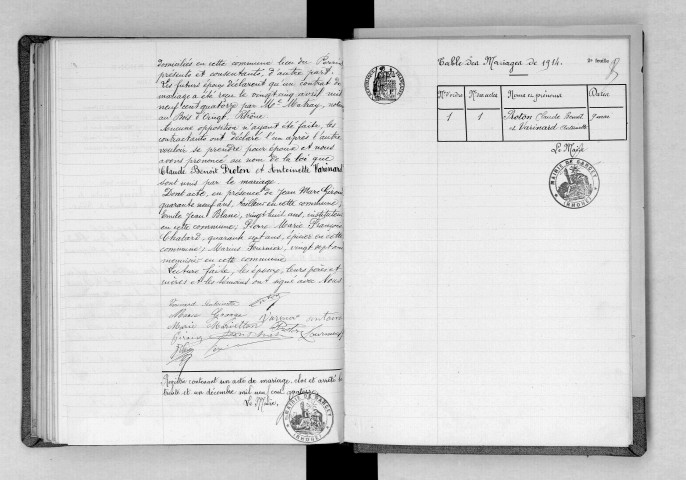 domiciliés en cette commune lieu du
présents et consentants, d'autre part.
Les futurs époux déclarent qu'un contrat de
mariage a été reçu le vingt cinq avril mil
neuf cent quatorze par Me notaire
au Bois d'Oingt, Rhône
Aucune opposition n'ayant été faite, les
contractants ont déclaré l'un après l'autre
vouloir se prendre pour époux et nous
avons prononcé au nom de la loi que
Claude Benoît Proton et Antoinette Varinard
sont unis par le mariage.
Dont acte, en présence de Jean Marc
quarante neuf ans, tailleur en cette commune,
Emile Jean Blanc, vingt huit ans, instituteur
en cette commune; Pierre Marie François
Chatard, quarante sept ans, épicier en cette
commune; Marius Fournier, vingt sept ans
menuisier en cette commune
Lecture faite, les époux, leurs pères et
mères et les témoins ont signé avec Nous
Varinard Antoinette
George
Marie
Proton
Registre contenant un acte de mariage, clos et arrêté le
trente et un décembre mil neuf cent quatorze.
Le Maire,
MAIRIE DE
(RHONE)
Table des Mariages de 1914.
Nos d'ordre Nos des actes Noms et prénoms Dates
1 1 Proton Claude Benoît 9 mai
et Varinard Antoinette
Le Maire
MAIRIE DE
(RHONE)